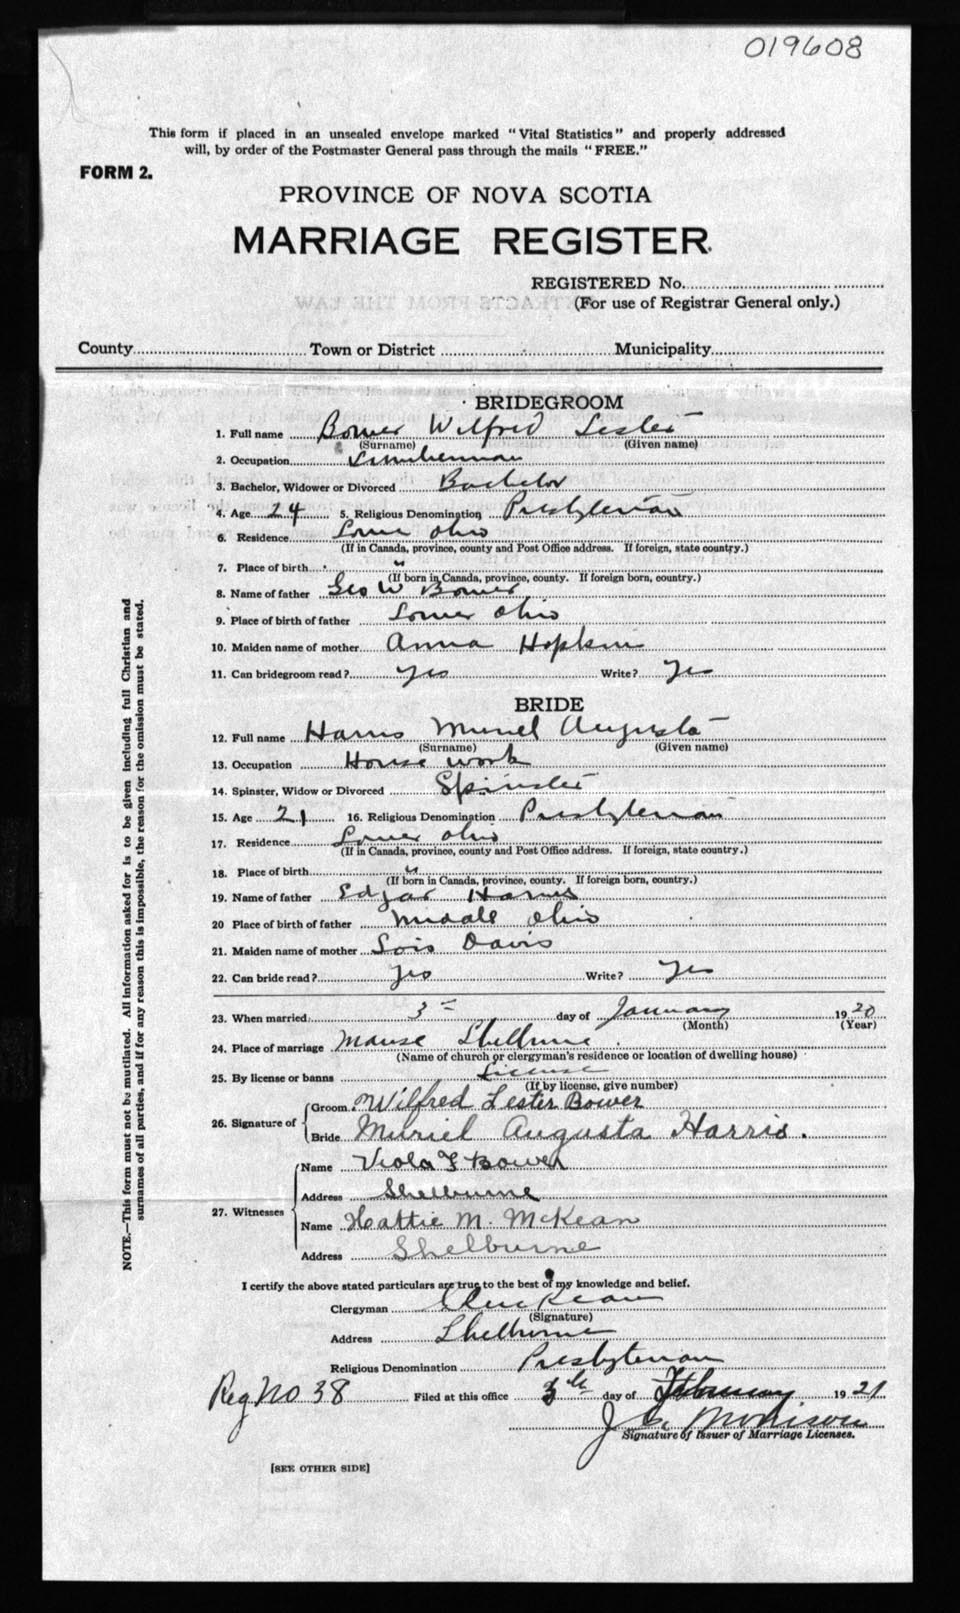 019608
This form if placed in an unsealed envelope marked "Vital Statistics" and properly addressed
will, by order of the Postmaster General pass through the mails "FREE."
FORM 2.
PROVINCE OF NOVA SCOTIA
MARRIAGE REGISTER.
REGISTERED No.
(For use of Registrar General only.)
County Town or District Municipality
BRIDEGROOM
1. Full name Bower Wilfred Lester
(Surname) (Given name)
2. Occupation Lumberman
3. Bachelor, Widower or Divorced Bachelor
4. Age 24 5. Religious Denomination Presbyterian
6. Residence Lower Ohio
(If in Canada, province, county and Post Office address. If foreign, state country.)
7. Place of birth "
(If born in Canada, province, county. If foreign born, country.)
8. Name of father Geo W Bower
9. Place of birth of father Lower Ohio
10. Maiden name of mother Anna Hopkins
11. Can bridegroom read? Yes Write? Yes
BRIDE
12. Full name Harris Muriel Augusta
(Surname) (Given name)
13. Occupation House work
14. Spinster, Widow or Divorced Spinster
15. Age 21 16. Religious Denomination Presbyterian
17. Residence Lower Ohio
(If in Canada, province, county and Post Office address. If foreign, state country.)
18. Place of birth "
(If born in Canada, province, county. If foreign born, country.)
19. Name of father Edgar Harris
20 Place of birth of father Middle Ohio
21. Maiden name of mother Lois Davis
22. Can bride read? Yes Write? Yes
23. When married 3 day of January 1920
(Month) (Year)
24. Place of marriage Manse Shelburne.
(Name of church or clergyman's residence or location of dwelling house)
25. By license or banns License
(If by license, give number)
26. Signature of Groom Wilfred Lester Bower
Bride Muriel Augusta Harris.
27. Witnesses Name Viola F Bower
Address Shelburne
Name Hattie M. McKean
Address Shelburne
I certify the above stated particulars are true to the best of my knowledge and belief.
Clergyman
(Signature)
Address Shelburne
Religious Denomination Presbyterian
Reg No 38 Filed at this office 3th day of February 1921
Morrison
Signature of Issuer of Marriage Licenses.
[SEE OTHER SIDE]
NOTE.—This form must not be mutilated. All information asked for is to be given including full Christian and
surnames of all parties, and if for any reason this is impossible, the reason for the omission must be stated.